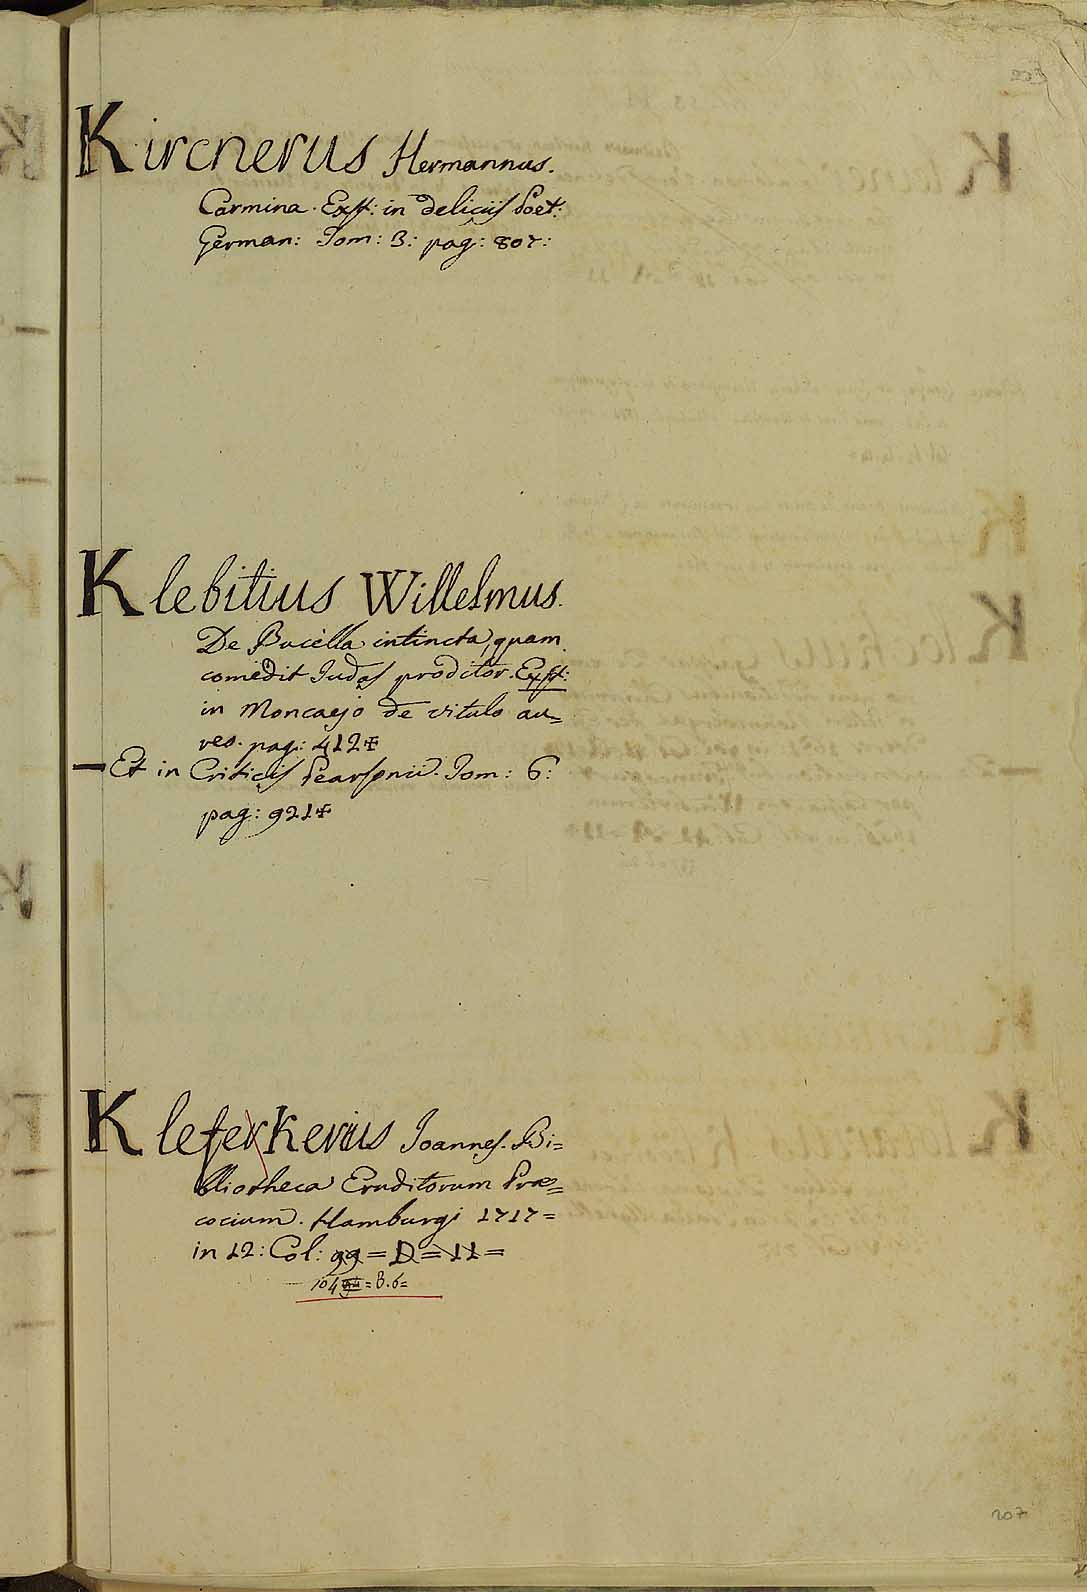 Kircnerus Hermannus.
Carmina. Exst: in deliciis Poet:
German: Tom: 3: pag: 807:
Klebitius Willelmus.
De Bucella intincta, quam
comedit Judas proditor. Exst:
in Moncaejo de vitulo au=
reo. pag: 412✠
— Et in Criticis Pearsonii. Tom: 6:
pag: 921✠
Kleferkerius Joannes. Bi=
bliotheca Eruditorum Præ=
cocium. Hamburgi 1717=
in 12: Col: 99=D=11=
104 =B.6=
207